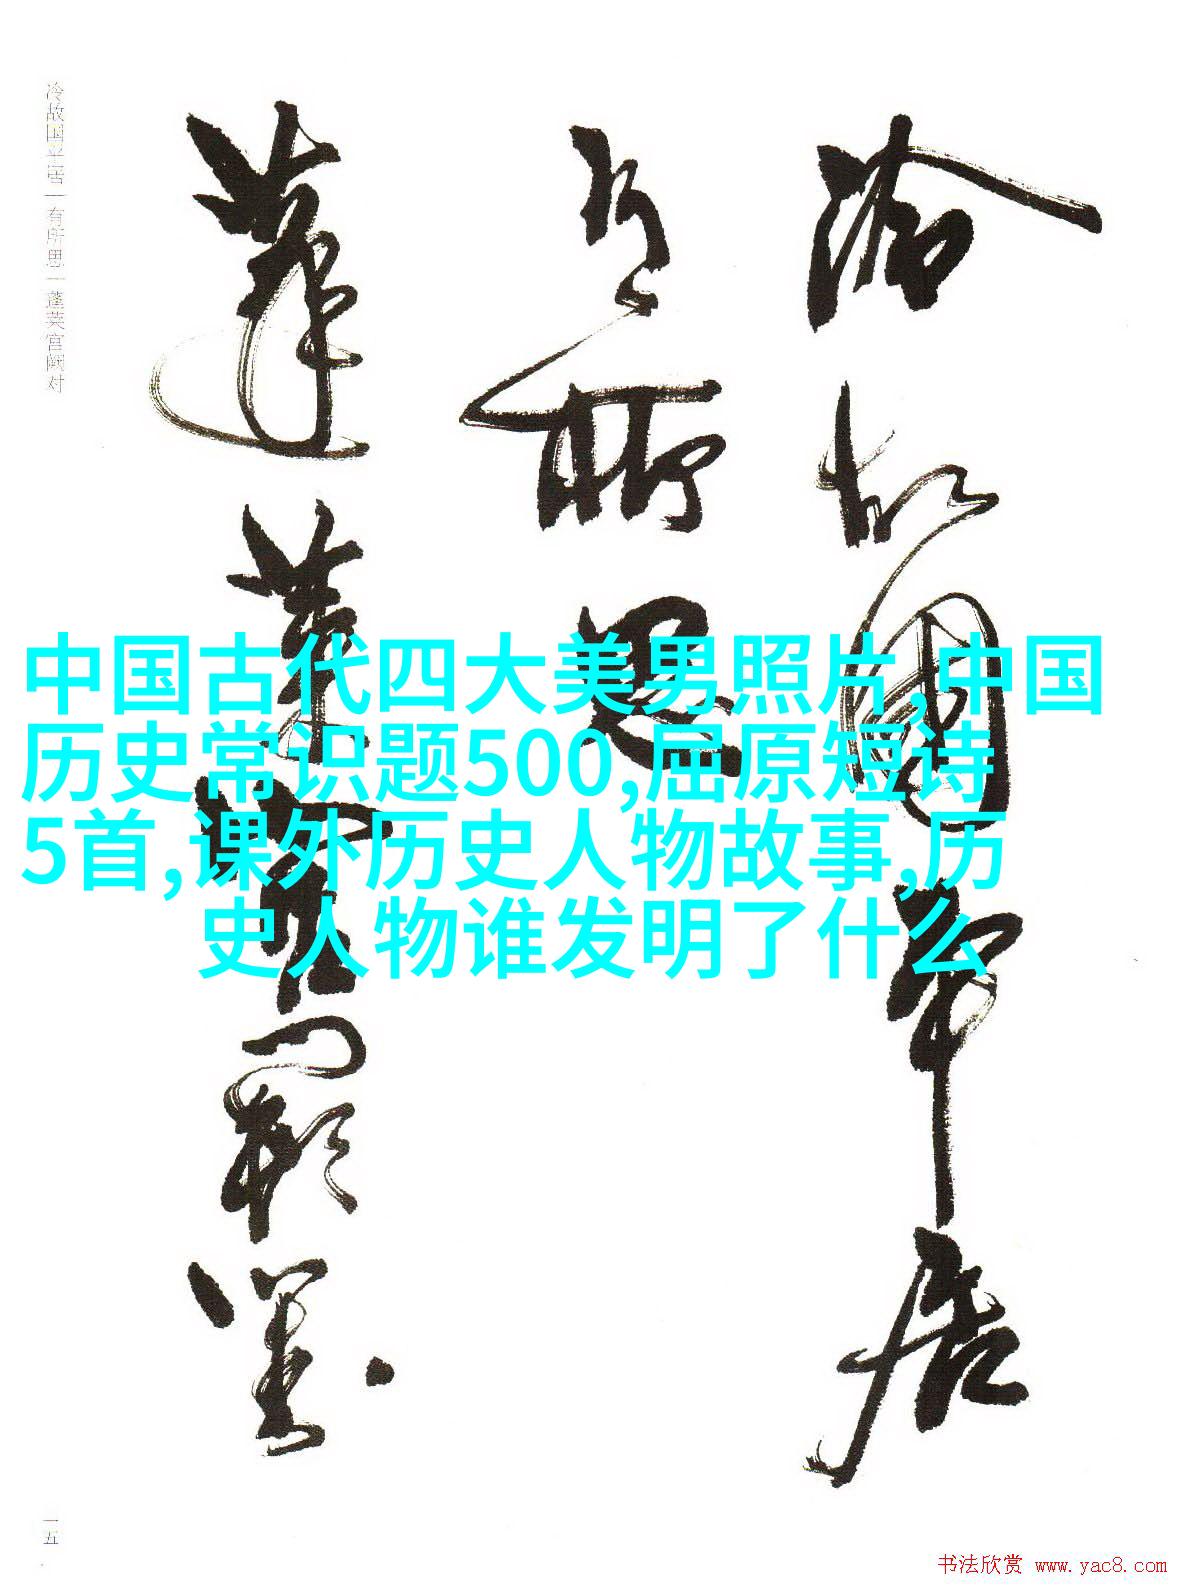 冷故国平居
有所思
蓬莱宫阙对
冷故国平居｜有所思｜蓬莱宫阙对
中国古代四大美男照片,中国
历史常识题500,屈原短诗
5首,课外历史人物故事,历
史人物谁发明了什么
一五
书法欣赏 www.yac8.com